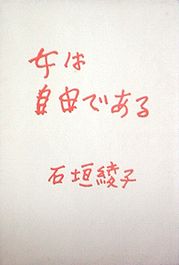 女は
自由である
石垣綾子